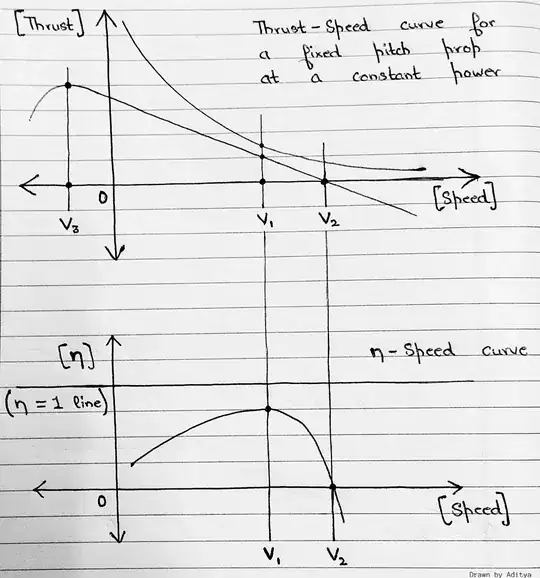 [Thrust]
Thrust-Speed curve for
a fixed pitch prop
at a constant power
0
[Speed]
V3
V1
V2
[η]
η-Speed curve
(η = 1 line)
0
[Speed]
V1
V2
Drawn by Aditya